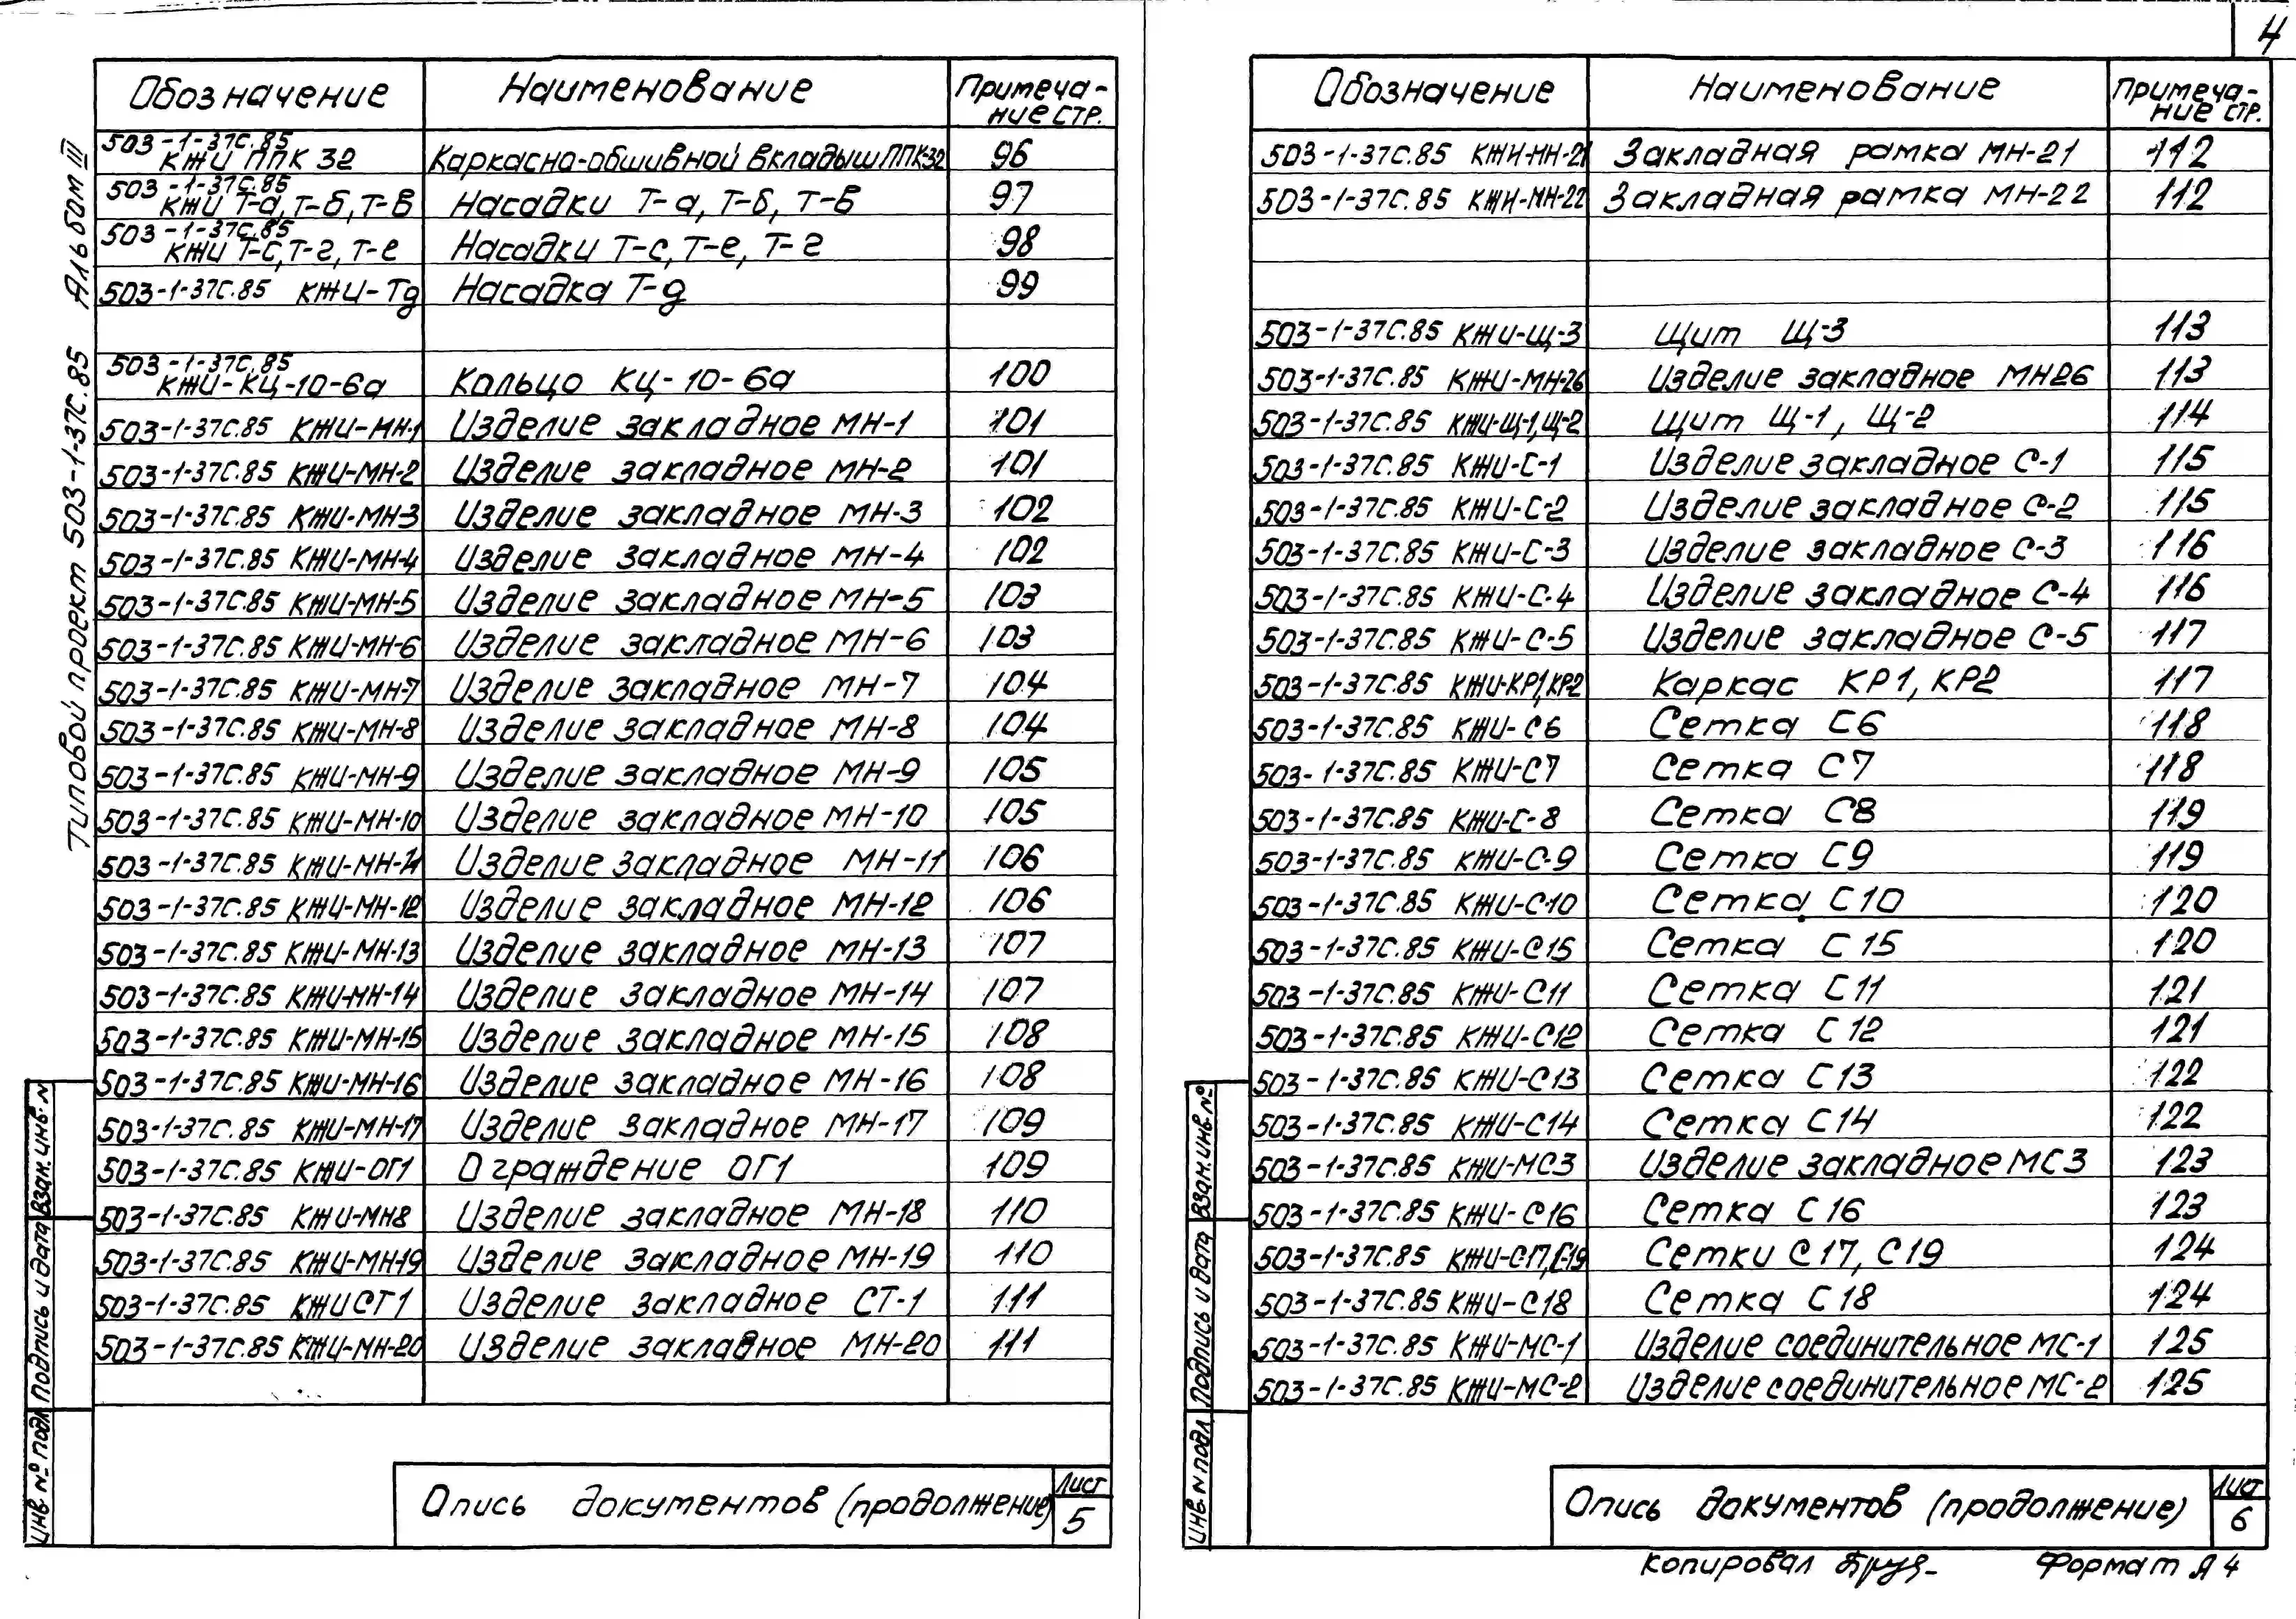 4
Типовой проект 503-1-37С.85 Альбом III
Обозначение Наименование Примеча-
ние стр.
503-1-37С.85
КЖИ ППК 32 Каркасно-обшивной вкладыш ППК-32 96
503-1-37С.85
КЖИ Т-а, Т-б, Т-в Насадки Т-а, Т-б, Т-в 97
503-1-37С.85
КЖИ Т-с, Т-г, Т-е Насадки Т-с, Т-е, Т-г 98
503-1-37С.85 КЖИ-Тд Насадка Т-д 99
503-1-37С.85
КЖИ-КЦ-10-6а Кольцо КЦ-10-6а 100
503-1-37С.85 КЖИ-МН-1 Изделие закладное МН-1 101
503-1-37С.85 КЖИ-МН-2 Изделие закладное МН-2 101
503-1-37С.85 КЖИ-МН-3 Изделие закладное МН-3 102
503-1-37С.85 КЖИ-МН-4 Изделие закладное МН-4 102
503-1-37С.85 КЖИ-МН-5 Изделие закладное МН-5 103
503-1-37С.85 КЖИ-МН-6 Изделие закладное МН-6 103
503-1-37С.85 КЖИ-МН-7 Изделие закладное МН-7 104
503-1-37С.85 КЖИ-МН-8 Изделие закладное МН-8 104
503-1-37С.85 КЖИ-МН-9 Изделие закладное МН-9 105
503-1-37С.85 КЖИ-МН-10 Изделие закладное МН-10 105
503-1-37С.85 КЖИ-МН-11 Изделие закладное МН-11 106
503-1-37С.85 КЖИ-МН-12 Изделие закладное МН-12 106
503-1-37С.85 КЖИ-МН-13 Изделие закладное МН-13 107
503-1-37С.85 КЖИ-МН-14 Изделие закладное МН-14 107
503-1-37С.85 КЖИ-МН-15 Изделие закладное МН-15 108
503-1-37С.85 КЖИ-МН-16 Изделие закладное МН-16 108
503-1-37С.85 КЖИ-МН-17 Изделие закладное МН-17 109
503-1-37С.85 КЖИ-ОГ1 Ограждение ОГ1 109
503-1-37С.85 КЖИ-МН8 Изделие закладное МН-18 110
503-1-37С.85 КЖИ-МН-19 Изделие закладное МН-19 110
503-1-37С.85 КЖИСТ1 Изделие закладное СТ-1 111
503-1-37С.85 КЖИ-МН-20 Изделие закладное МН-20 111
Взам.инв.N
Подпись и дата
Инв N° подл
Опись документов (продолжение) Лист
5
Обозначение Наименование Примеча-
ние стр.
503-1-37С.85 КЖИ-МН-21 Закладная рамка МН-21 112
503-1-37С.85 КЖИ-МН-22 Закладная рамка МН-22 112
503-1-37С.85 КЖИ-Щ-3 Щит Щ-3 113
503-1-37С.85 КЖИ-МН-26 Изделие закладное МН26 113
503-1-37С.85 КЖИ-Щ-1,Щ-2 Щит Щ-1, Щ-2 114
503-1-37С.85 КЖИ-С-1 Изделие закладное С-1 115
503-1-37С.85 КЖИ-С-2 Изделие закладное С-2 115
503-1-37С.85 КЖИ-С-3 Изделие закладное С-3 116
503-1-37С.85 КЖИ-С-4 Изделие закладное С-4 116
503-1-37С.85 КЖИ-С-5 Изделие закладное С-5 117
503-1-37С.85 КЖИ-КР1,КР2 Каркас КР1, КР2 117
503-1-37С.85 КЖИ-С6 Сетка С6 118
503-1-37С.85 КЖИ-С7 Сетка С7 118
503-1-37С.85 КЖИ-С-8 Сетка С8 119
503-1-37С.85 КЖИ-С-9 Сетка С9 119
503-1-37С.85 КЖИ-С-10 Сетка С10 120
503-1-37С.85 КЖИ-С15 Сетка С15 120
503-1-37С.85 КЖИ-С11 Сетка С11 121
503-1-37С.85 КЖИ-С12 Сетка С12 121
503-1-37С.85 КЖИ-С13 Сетка С13 122
503-1-37С.85 КЖИ-С14 Сетка С14 122
503-1-37С.85 КЖИ-МС3 Изделие закладное МС3 123
503-1-37С.85 КЖИ-С16 Сетка С16 123
503-1-37С.85 КЖИ-С17,С-19 Сетки С17, С19 124
503-1-37С.85 КЖИ-С18 Сетка С18 124
503-1-37С.85 КЖИ-МС-1 Изделие соединительное МС-1 125
503-1-37С.85 КЖИ-МС-2 Изделие соединительное МС-2 125
Взам.инв.N°
Подпись и дата
Инв N подл
Опись документов (продолжение) Лист
6
Копировал Формат А4